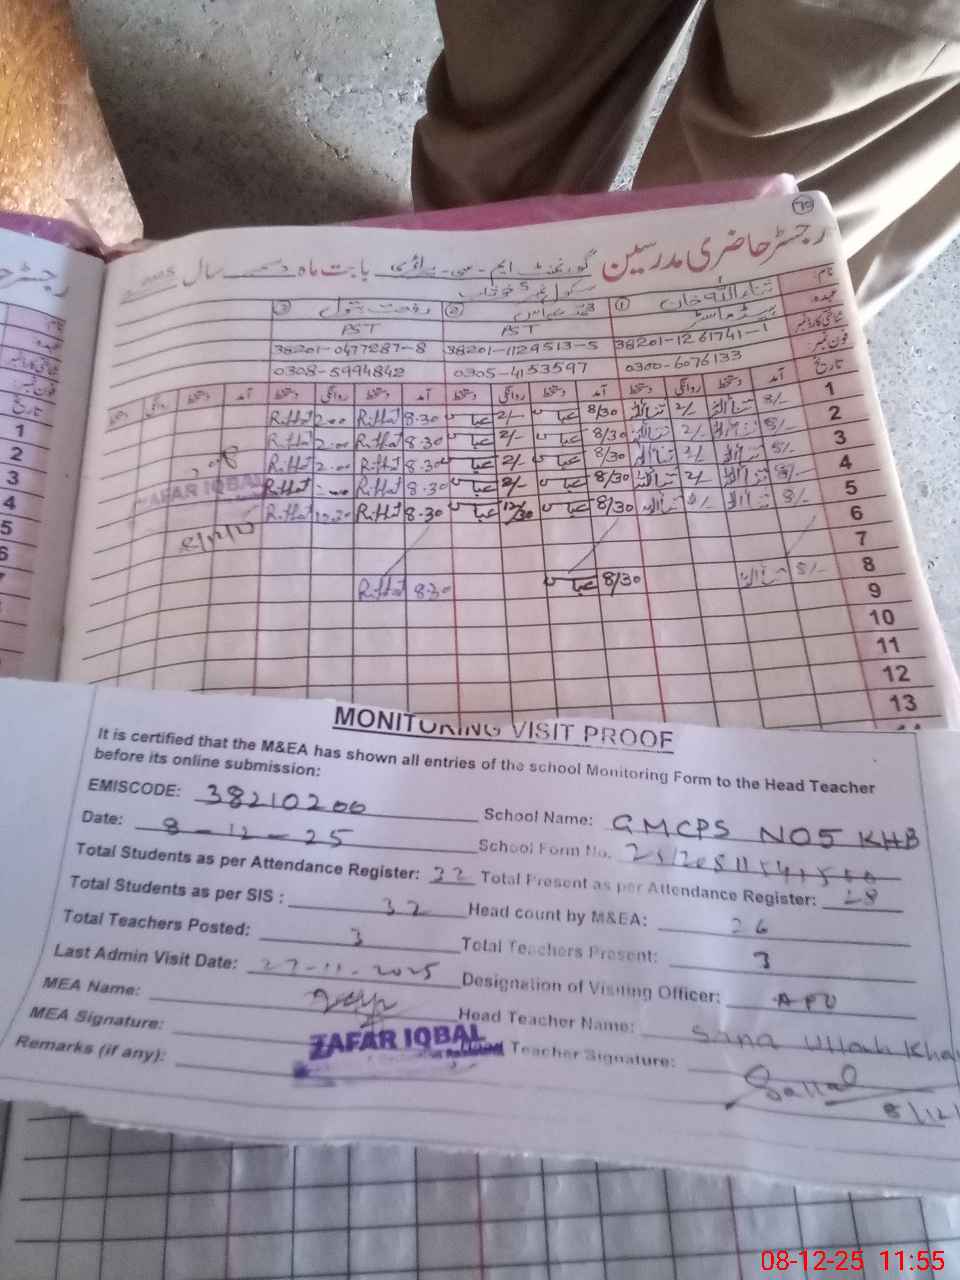 70
رجسٹر حاضری مدرسین گورنمنٹ ایم - سی - پرائمری بابت ماہ دسمبر سال 2025
سکول نمبر 5 خوشاب
نام ثناء اللہ خان ① عباس ② رفعت بتول ③
عہدہ ہیڈ ماسٹر PST PST
شناختی کارڈ نمبر 38201-1261741-1 38201-1129513-5 38201-0477287-8
فون نمبر 0300-6076133 0305-4153597 0308-5994842
تاریخ آمد دستخط روانگی دستخط آمد دستخط روانگی دستخط آمد دستخط روانگی دستخط آمد دستخط روانگی دستخط
1 8/- ثناء اللہ 2/- ثناء اللہ 8/30 عباس 2/- عباس 8.30 Riffat 2.00 Riffat
2 8/- ثناء اللہ 2/- ثناء اللہ 8/30 عباس 2/- عباس 8.30 Riffat 2.00 Riffat
3 8/- ثناء اللہ 2/- ثناء اللہ 8/30 عباس 2/- عباس 8.30 Riffat 2.00 Riffat
4 8/- ثناء اللہ 2/- ثناء اللہ 8/30 عباس 2/- عباس 8.30 Riffat Riffat
5 8/- ثناء اللہ ثناء اللہ 8/30 عباس 12/30 عباس 8.30 Riffat Riffat
ZAFAR IQBAL
6
7
8 8/- ثناء اللہ 8/30 عباس 8.30 Riffat
9
10
11
12
13
نام
عہدہ
شناختی کارڈ نمبر
فون نمبر
تاریخ
1
2
3
4
5
MONITORING VISIT PROOF
It is certified that the M&EA has shown all entries of the school Monitoring Form to the Head Teacher
before its online submission:
EMISCODE: 38210200 School Name: GMCPS NO5 KHB
Date: 8-12-25 School Form No.
Total Students as per Attendance Register: 32 Total Present as per Attendance Register: 28
Total Students as per SIS : 32 Head count by M&EA: 26
Total Teachers Posted: 3 Total Teachers Present: 3
Last Admin Visit Date: 27-11-2025 Designation of Visiting Officer: APO
MEA Name: Head Teacher Name: Sana Ullah Khan
MEA Signature: ZAFAR IQBAL Teacher Signature:
Remarks (if any): 8/12/
08-12-25 11:55